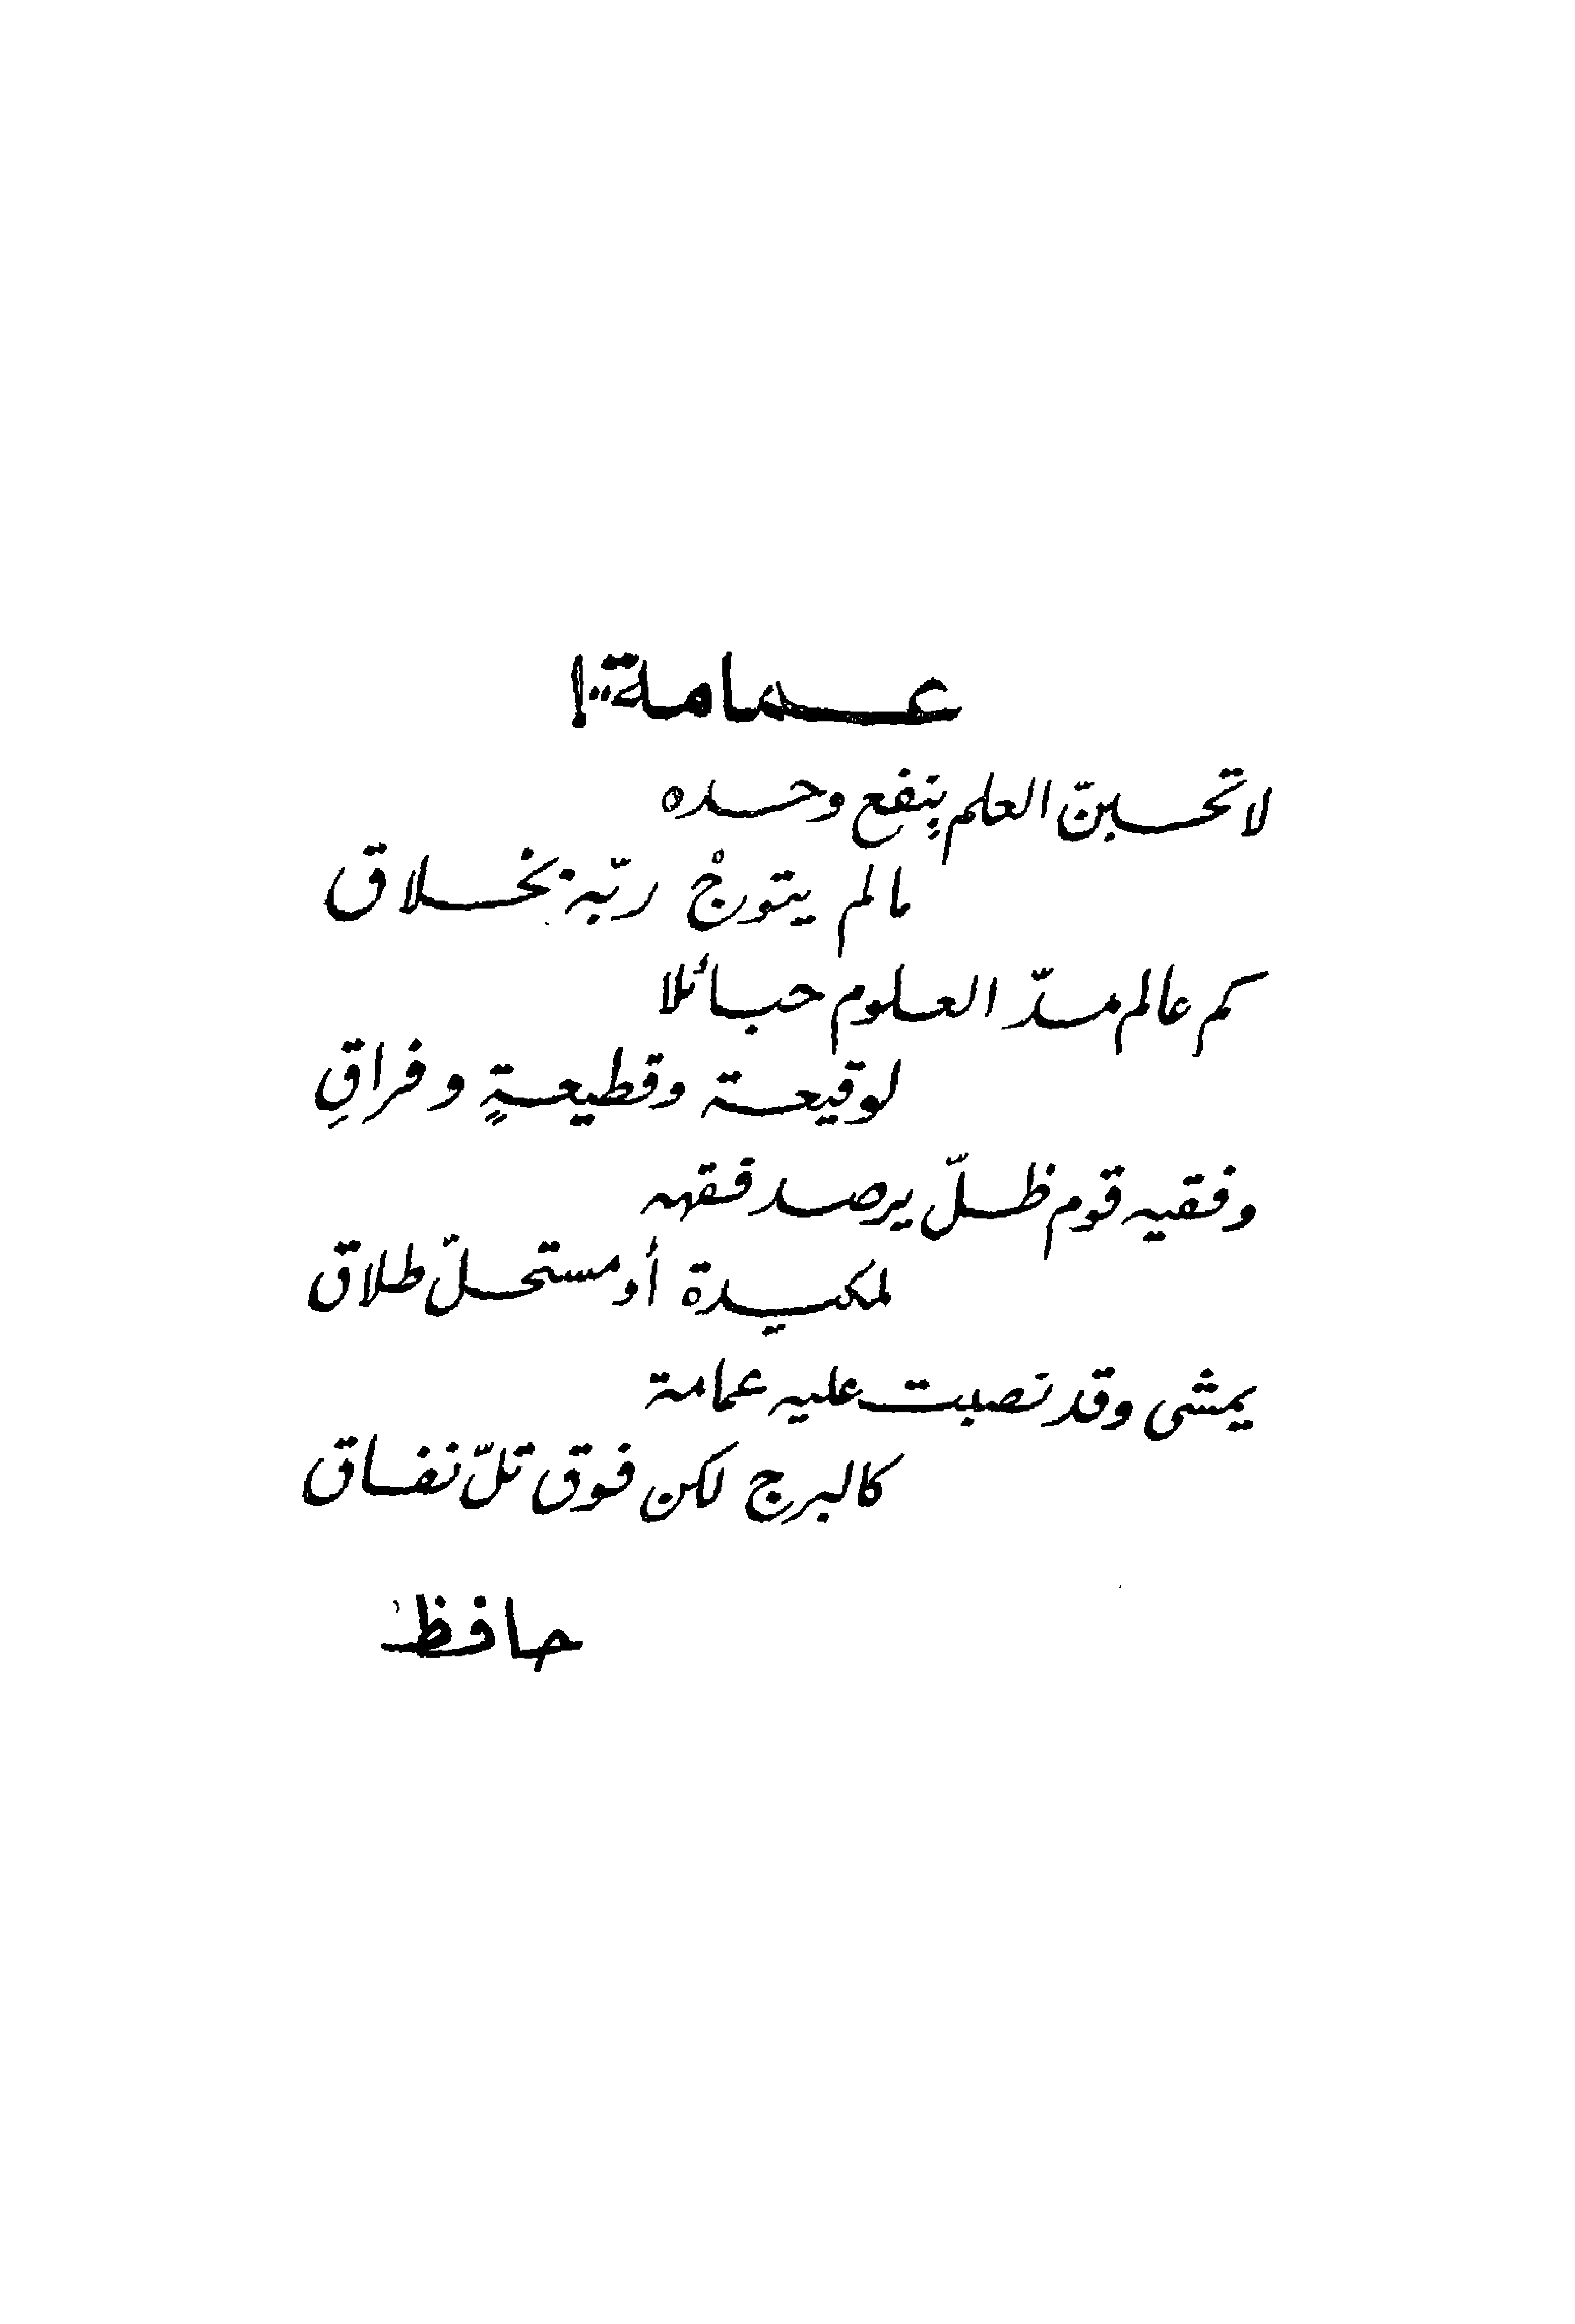 عمامة..!
لا تحسبنّ العلم بنفع وحده
مالم يتوجْ ربّه بخلاق
كم عالم مدّ العلوم حبائلا
لوقيعة وقطيعةٍ وفراقِ
وفقيه قوم ظلّ يرصد فقهه
لمكيدة أو مستحلّ طلاق
يمشى وقد نصبت عليه عمامة
كالبرج لكن فوق تلّ نفاق
حافظ